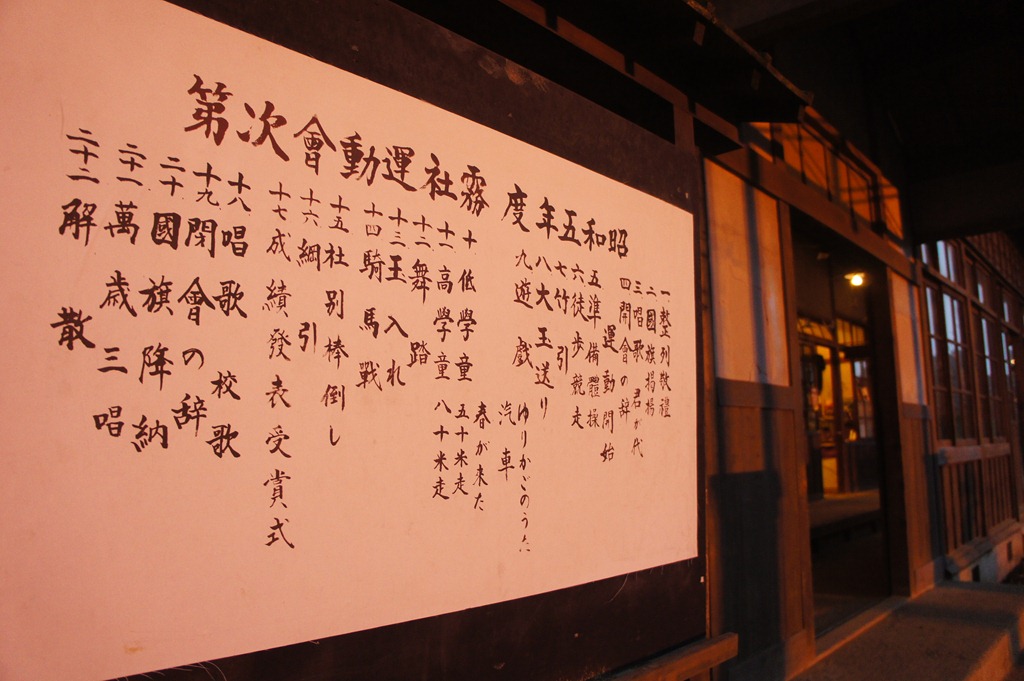 昭和五年度 霧社運動會次第
一 整列敬禮
二 國旗掲揚
三 唱歌 君が代
四 開會の辞
運動開始
五 準備體操
六 徒歩競走
七 竹引
八 大玉送り
九 遊戯 ゆりかごのうた
汽車
春が来た
十 低學童 五十米走
十一 高學童 八十米走
十二 舞踏
十三 玉入れ
十四 騎馬戰
十五 社別棒倒し
十六 綱引
十七 成績發表受賞式
十八 唱歌 校歌
十九 閉會の辞
二十 國旗降納
二十一 萬歳三唱
二十二 解散